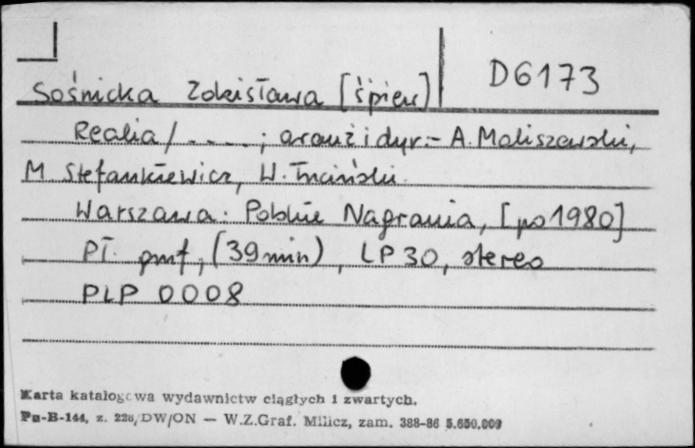 D6173
Sośnicka Zdzisława [śpiew]
Realia / . . . . ; aranż i dyr. - A. Maliszewski,
M Stefankiewicz, W. Trzciński.
Warszawa: Polskie Nagrania, [po 1980]
Pł. gmf, (39 min), LP 30, stereo
PLP 0008
Karta katalogowa wydawnictw ciągłych i zwartych.
Pu-B-144, z. 226/DW/ON — W.Z.Graf. Milicz, zam. 388-86 5.650.000